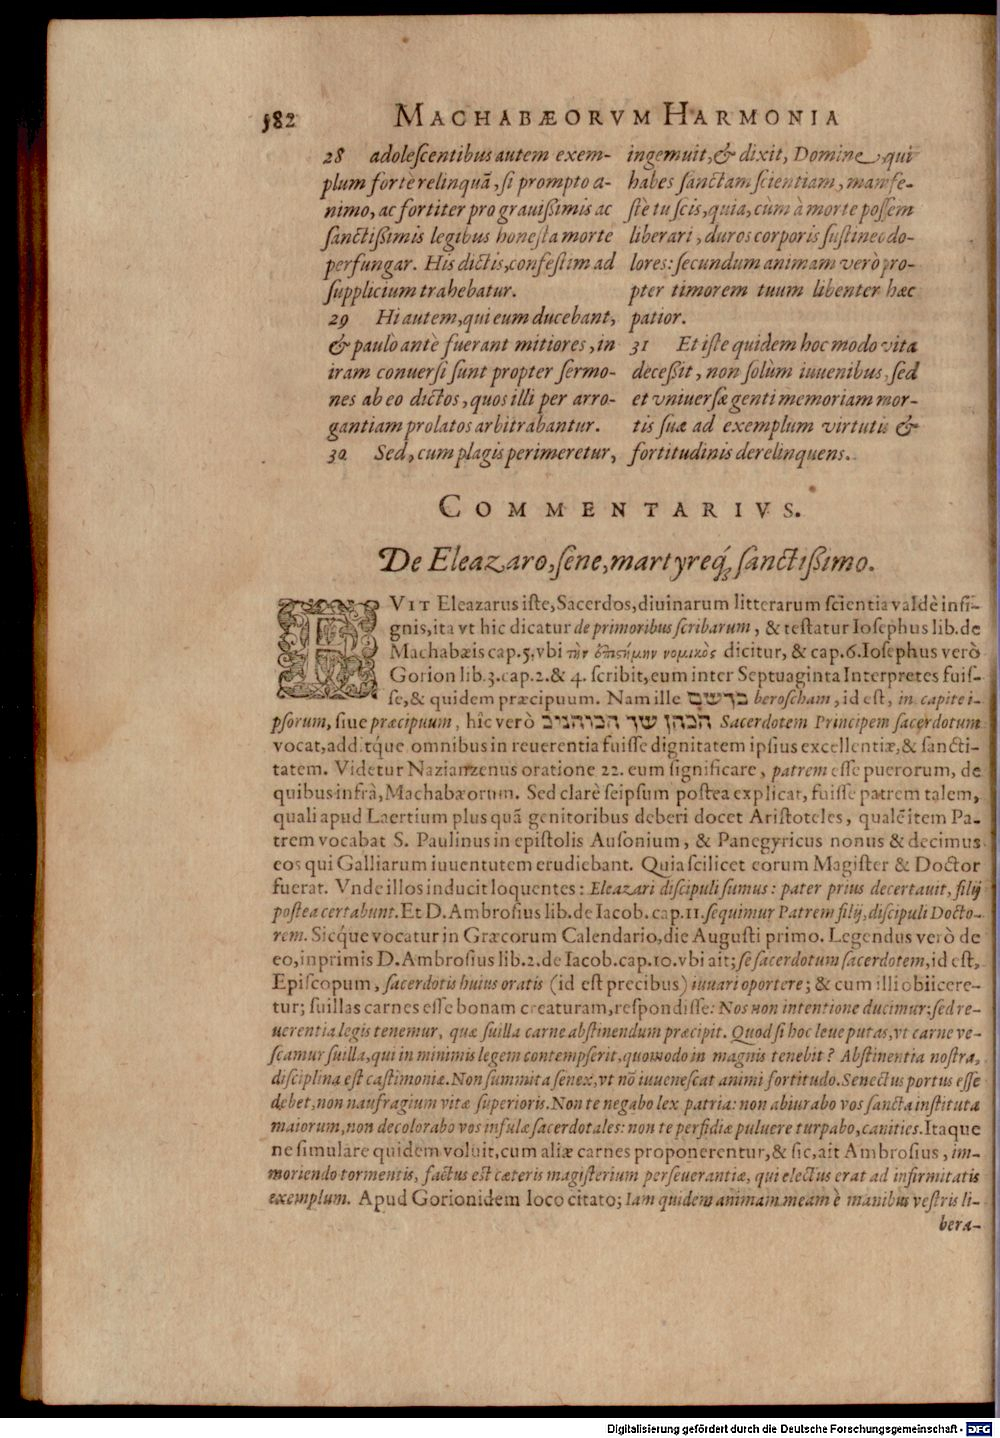 582 MACHABÆORVM HARMONIA
28 adolescentibus autem exem-
plum fortè relinquã, si prompto a-
nimo, ac fortiter pro grauißimis ac
sanctißimis legibus honesta morte
perfungar. His dictis, confestim ad
supplicium trahebatur.
29 Hi autem, qui eum ducebant,
& paulò antè fuerant mitiores, in
iram conuersi sunt propter sermo-
nes ab eo dictos, quos illi per arro-
gantiam prolatos arbitrabantur.
30 Sed, cum plagis perimeretur,
ingemuit, & dixit, Domine, qui
habes sanctam scientiam, manife-
stè tu scis, quia, cùm à morte possem
liberari, duros corporis sustineo do-
lores: secundum animam verò pro-
pter timorem tuum libenter hæc
patior.
31 Et iste quidem hoc modo vita
deceßit, non solùm iuuenibus, sed
et vniuersæ genti memoriam mor-
tis suæ ad exemplum virtutis &
fortitudinis derelinquens.
COMMENTARIVS.
De Eleazaro, sene, martyreq́; sanctißimo.
FVIT Eleazarus iste, Sacerdos, diuinarum litterarum scientia valdè insi-
gnis, ita vt hic dicatur de primoribus scribarum, & testatur Iosephus lib. de
Machabæis cap. 5. vbi τὴν ἐπιστήμην νομικὸς dicitur, & cap. 6. Iosephus verò
Gorion lib. 3. cap. 2. & 4. scribit, eum inter Septuaginta Interpretes fuis-
se, & quidem præcipuum. Nam ille ברשם beroscham, id est, in capite i-
psorum, siue præcipuum, hîc verò הכהן שר הכוהנים Sacerdotem Principem sacerdotum
vocat, additq́ue omnibus in reuerentia fuisse dignitatem ipsius excellentiæ, & sancti-
tatem. Videtur Nazianzenus oratione 22. eum significare, patrem esse puerorum, de
quibus infrà, Machabæorum. Sed clarè seipsum postea explicat, fuisse patrem talem,
quali apud Laertium plus quã genitoribus deberi docet Aristoteles, qualẽ item Pa-
trem vocabat S. Paulinus in epistolis Ausonium, & Panegyricus nonus & decimus
eos qui Galliarum iuuentutem erudiebant. Quia scilicet eorum Magister & Doctor
fuerat. Vnde illos inducit loquentes: Eleazari discipuli sumus: pater prius decertauit, filij
postea certabunt. Et D. Ambrosius lib. de Iacob. cap. 11. sequimur Patrem filij, discipuli Docto-
rem. Sicq́ue vocatur in Græcorum Calendario, die Augusti primo. Legendus verò de
eo, inprimis D. Ambrosius lib. 2. de Iacob. cap. 10. vbi ait; se sacerdotum sacerdotem, id est,
Episcopum, sacerdotis huius oratis (id est precibus) iuuari oportere; & cum illi obiicere-
tur; suillas carnes esse bonam creaturam, respondisse: Nos non intentione ducimur: sed re-
uerentia legis tenemur, quæ suilla carne abstinendum præcipit. Quod si hoc leue putas, vt carne ve-
scamur suilla, qui in minimis legem contempserit, quomodo in magnis tenebit? Abstinentia nostra,
disciplina est castimoniæ. Non summita senex, vt nõ iuuenescat animi fortitudo. Senectus portus esse
debet, non naufragium vitæ superioris. Non te negabo lex patria: non abiurabo vos sancta instituta
maiorum, non decolorabo vos insulæ sacerdotales: non te perfidiæ puluere turpabo, canities. Itaque
ne simulare quidem voluit, cum aliæ carnes proponerentur, & sic, ait Ambrosius, im-
moriendo tormentis, factus est cæteris magisterium perseuerantiæ, qui electus erat ad infirmitatis
exemplum. Apud Gorionidem loco citato; Iam quidem animam meam è manibus vestris li-
bera-
Digitalisierung gefördert durch die Deutsche Forschungsgemeinschaft - DFG